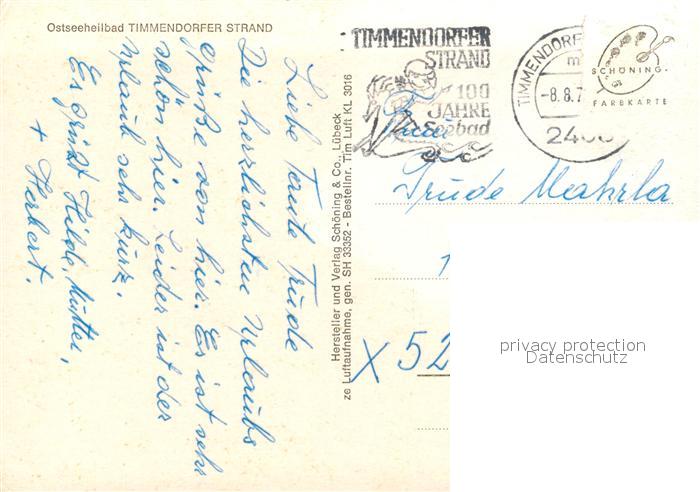 Ostseeheilbad TIMMENDORFER STRAND
Liebe Tante Trude
Die herzlichsten Urlaubs
grüße von hier. Es ist sehr
schön hier. Leider ist der
Urlaub sehr kurz.
Es grüßt Hilde, Mutter,
+ Herbert.
Hersteller und Verlag Schöning & Co., Lübeck
ze Luftaufnahme, gen. SH 33352 - Bestellnr. Tim Luft KL 3016
TIMMENDORFER
STRAND
100
JAHRE
Seebad
TIMMENDORF
-8.8.7
SCHÖNING
FARBKARTE
Trude Makrla
X 52
privacy protection
Datenschutz